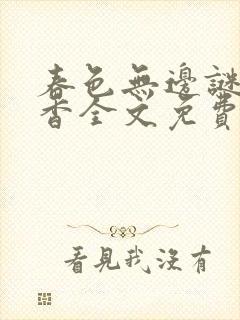 春色無邊謎
香全文免費
看見我沒有